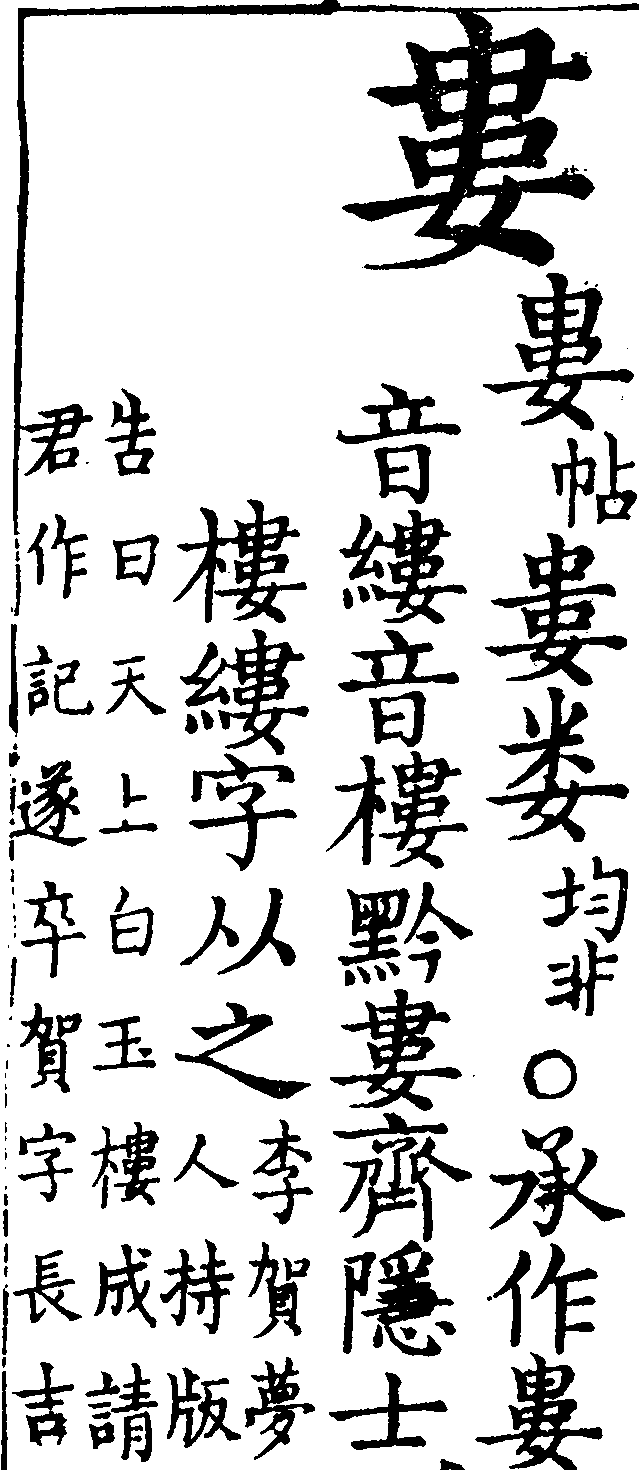 婁
婁帖婁娄均非○承作婁
音縷音樓黔婁齊隱士
樓縷字从之李賀夢
人持版
告曰天上白玉樓成請
君作記遂卒賀字長吉